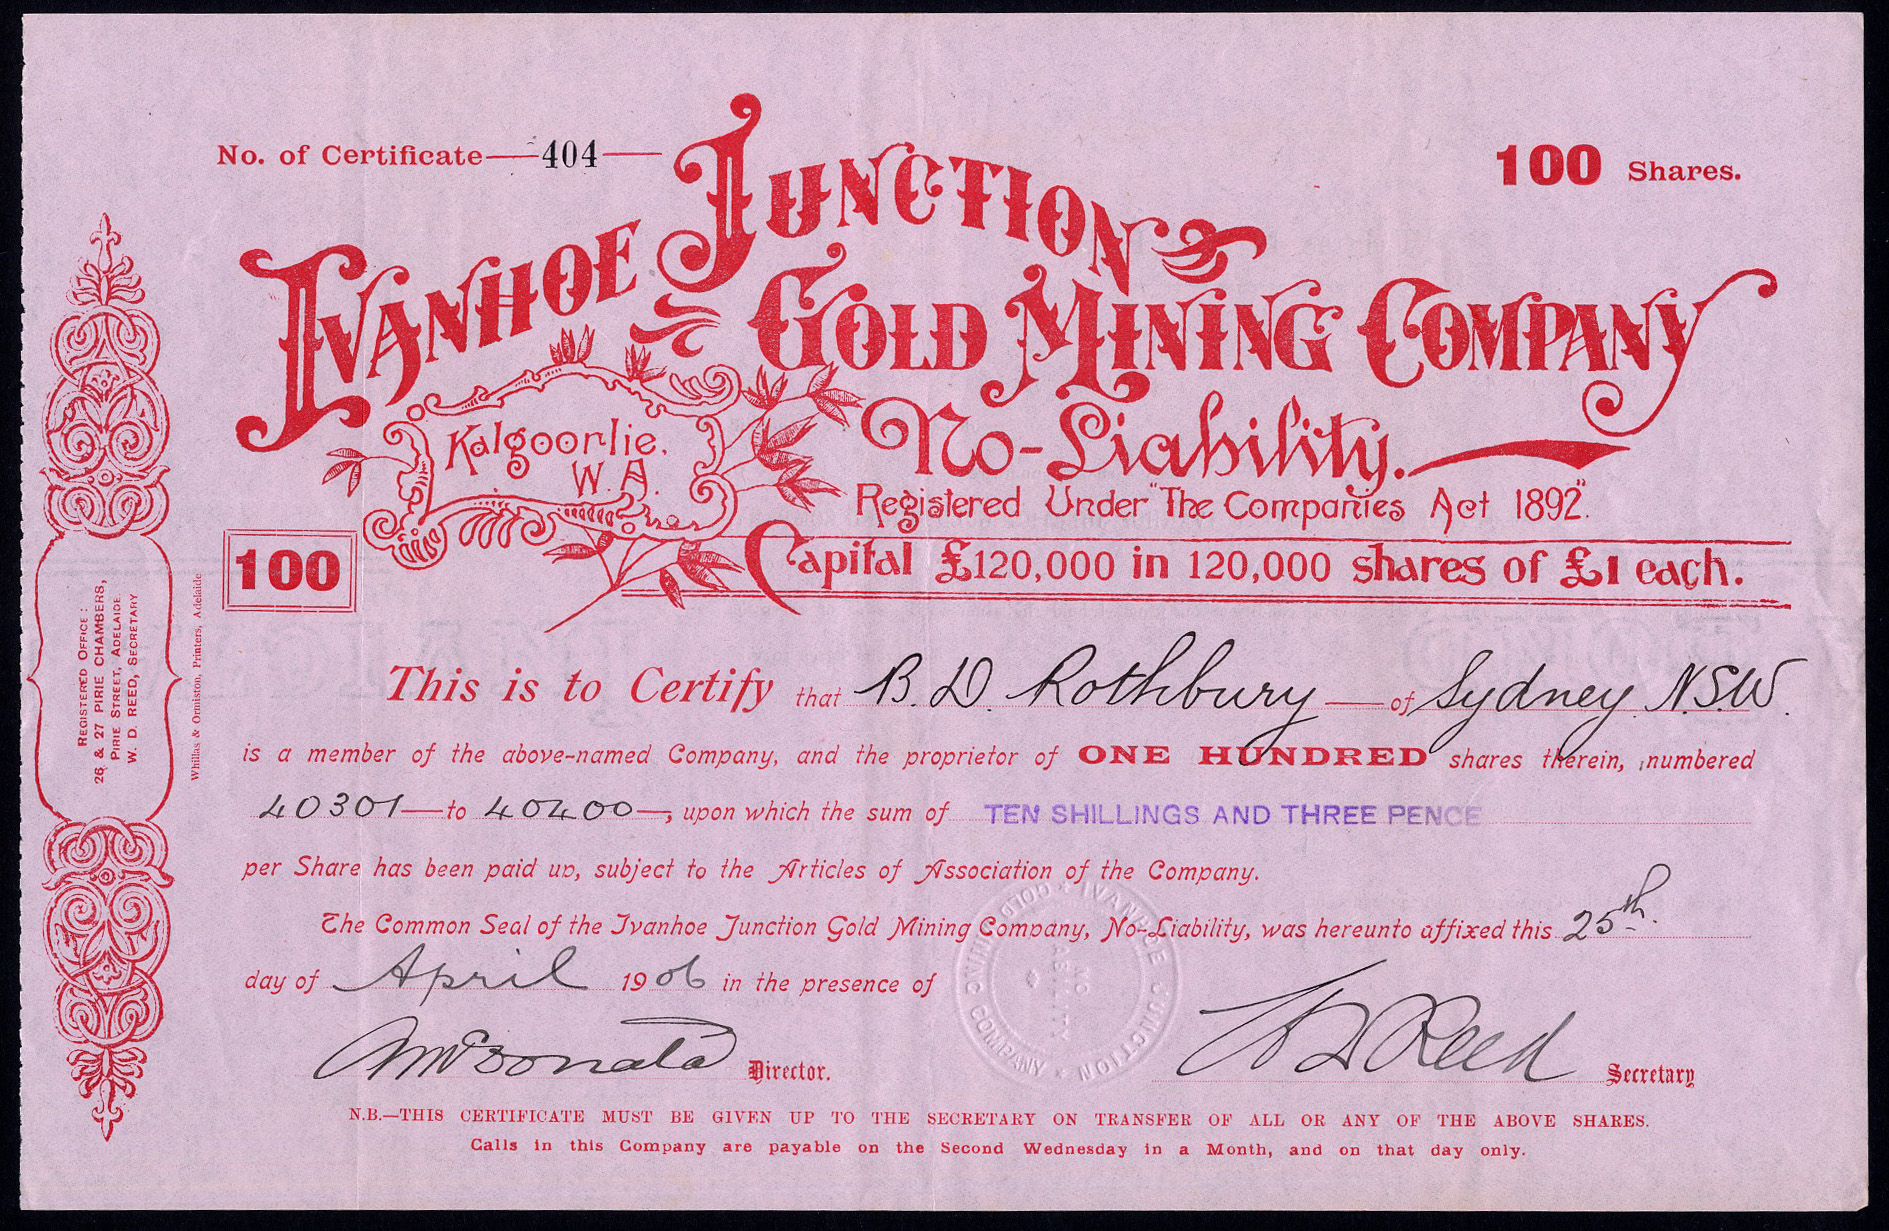 No. of Certificate 404
100 Shares.
IVANHOE JUNCTION
GOLD MINING COMPANY
Kalgoorlie, W.A.
No-Liability.
Registered Under "The Companies Act 1892".
100
Capital £120,000 in 120,000 shares of £1 each.
REGISTERED OFFICE:
26 & 27 PIRIE CHAMBERS,
PIRIE STREET, ADELAIDE
W. D. REED, SECRETARY
Whillas & Ormiston, Printers, Adelaide
This is to Certify that B. D. Rothbury of Sydney. N.S.W.
is a member of the above-named Company, and the proprietor of ONE HUNDRED shares therein, numbered
40301 to 40400, upon which the sum of TEN SHILLINGS AND THREE PENCE
per Share has been paid up, subject to the Articles of Association of the Company.
The Common Seal of the Ivanhoe Junction Gold Mining Company, No-Liability, was hereunto affixed this 25th.
day of April 1906 in the presence of
IVANHOE JUNCTION * GOLD MINING COMPANY *
NO LIABILITY
AMcDonald Director.
W D Reed Secretary
N.B.—THIS CERTIFICATE MUST BE GIVEN UP TO THE SECRETARY ON TRANSFER OF ALL OR ANY OF THE ABOVE SHARES.
Calls in this Company are payable on the Second Wednesday in a Month, and on that day only.